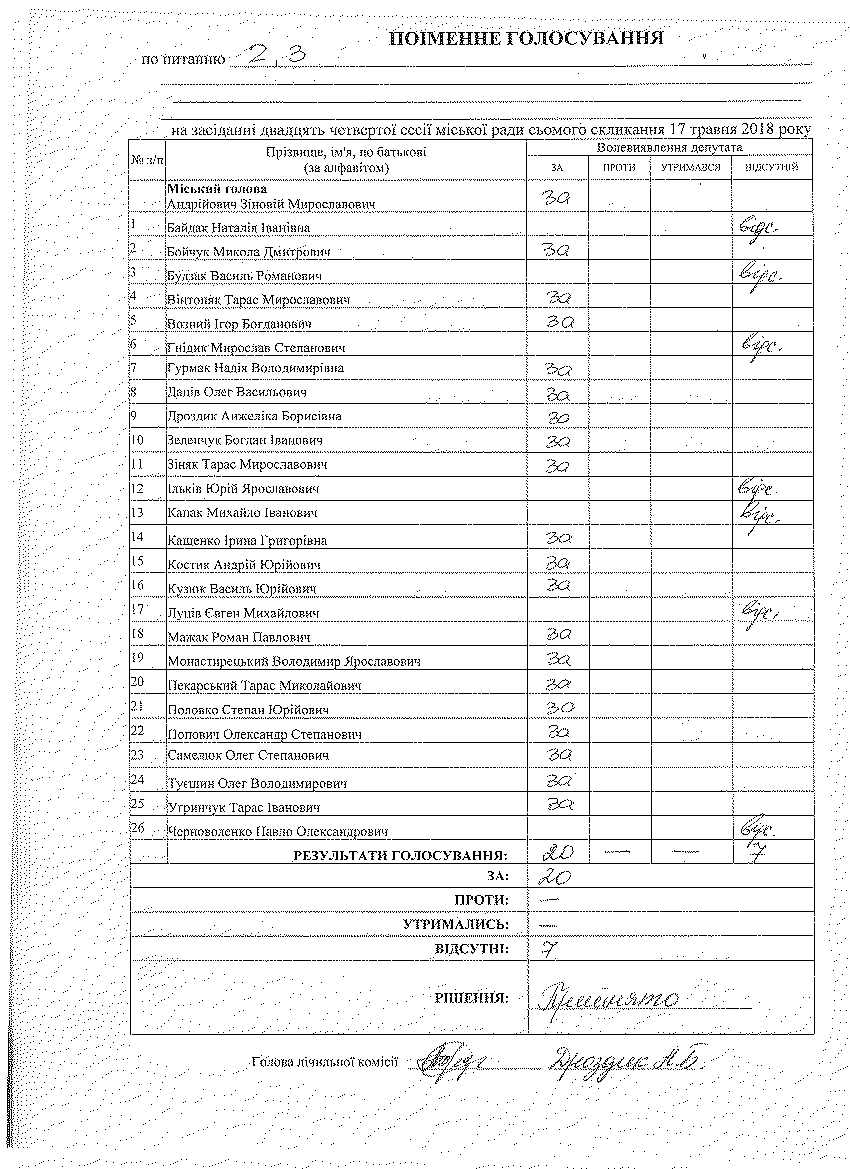 ПОІМЕННЕ ГОЛОСУВАННЯ
по питанню 2,3
на засіданні двадцять четвертої сесії міської ради сьомого скликання 17 травня 2018 року
№ з/п Прізвище, ім'я, по батькові (за алфавітом) Волевиявлення депутата
ЗА ПРОТИ УТРИМАВСЯ ВІДСУТНІЙ
Міський голова
Андрійович Зіновій Мирославович за
1 Байдак Наталія Іванівна відс.
2 Бойчук Микола Дмитрович за
3 Будзак Василь Романович відс.
4 Вінтоняк Тарас Мирославович за
5 Возний Ігор Богданович за
6 Гнідик Мирослав Степанович відс.
7 Гурмак Надія Володимирівна за
8 Даців Олег Васильович за
9 Дроздик Анжеліка Борисівна за
10 Зеленчук Богдан Іванович за
11 Зіняк Тарас Мирославович за
12 Ільків Юрій Ярославович відс.
13 Капак Михайло Іванович відс.
14 Кащенко Ірина Григорівна за
15 Костик Андрій Юрійович за
16 Кузюк Василь Юрійович за
17 Луців Євген Михайлович відс.
18 Мажак Роман Павлович за
19 Монастирецький Володимир Ярославович за
20 Пекарський Тарас Миколайович за
21 Половко Степан Юрійович за
22 Попович Олександр Степанович за
23 Самелюк Олег Степанович за
24 Туєшин Олег Володимирович за
25 Угринчук Тарас Іванович за
26 Черноволенко Павло Олександрович відс.
РЕЗУЛЬТАТИ ГОЛОСУВАННЯ: 20 — — 7
ЗА: 20
ПРОТИ: —
УТРИМАЛИСЬ: —
ВІДСУТНІ: 7
РІШЕННЯ: Прийнято
Голова лічильної комісії Дроздик А.Б.